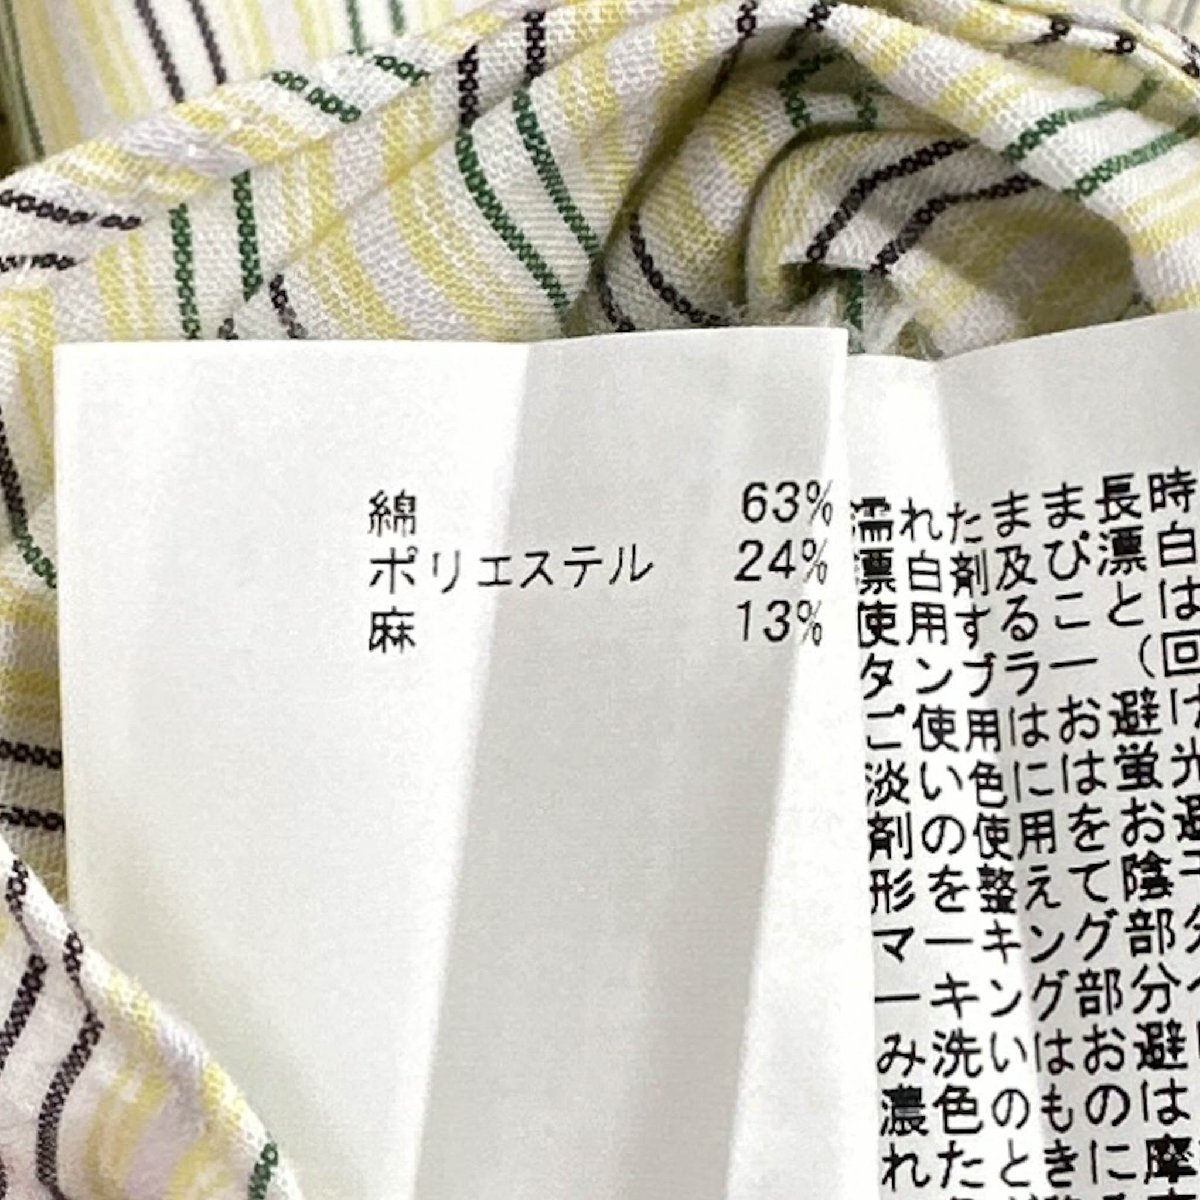 綿 63%
ポリエステル 24%
麻 13%
濡れたまま長時
漂白剤及び漂白
使用することは
タンブラー（回
ご使用はお避け
淡い色には蛍光
剤の使用をお避
形を整えて陰干
マーキング部分
ーキング部分へ
み洗いはお避け
濃色のものは
れたときに摩